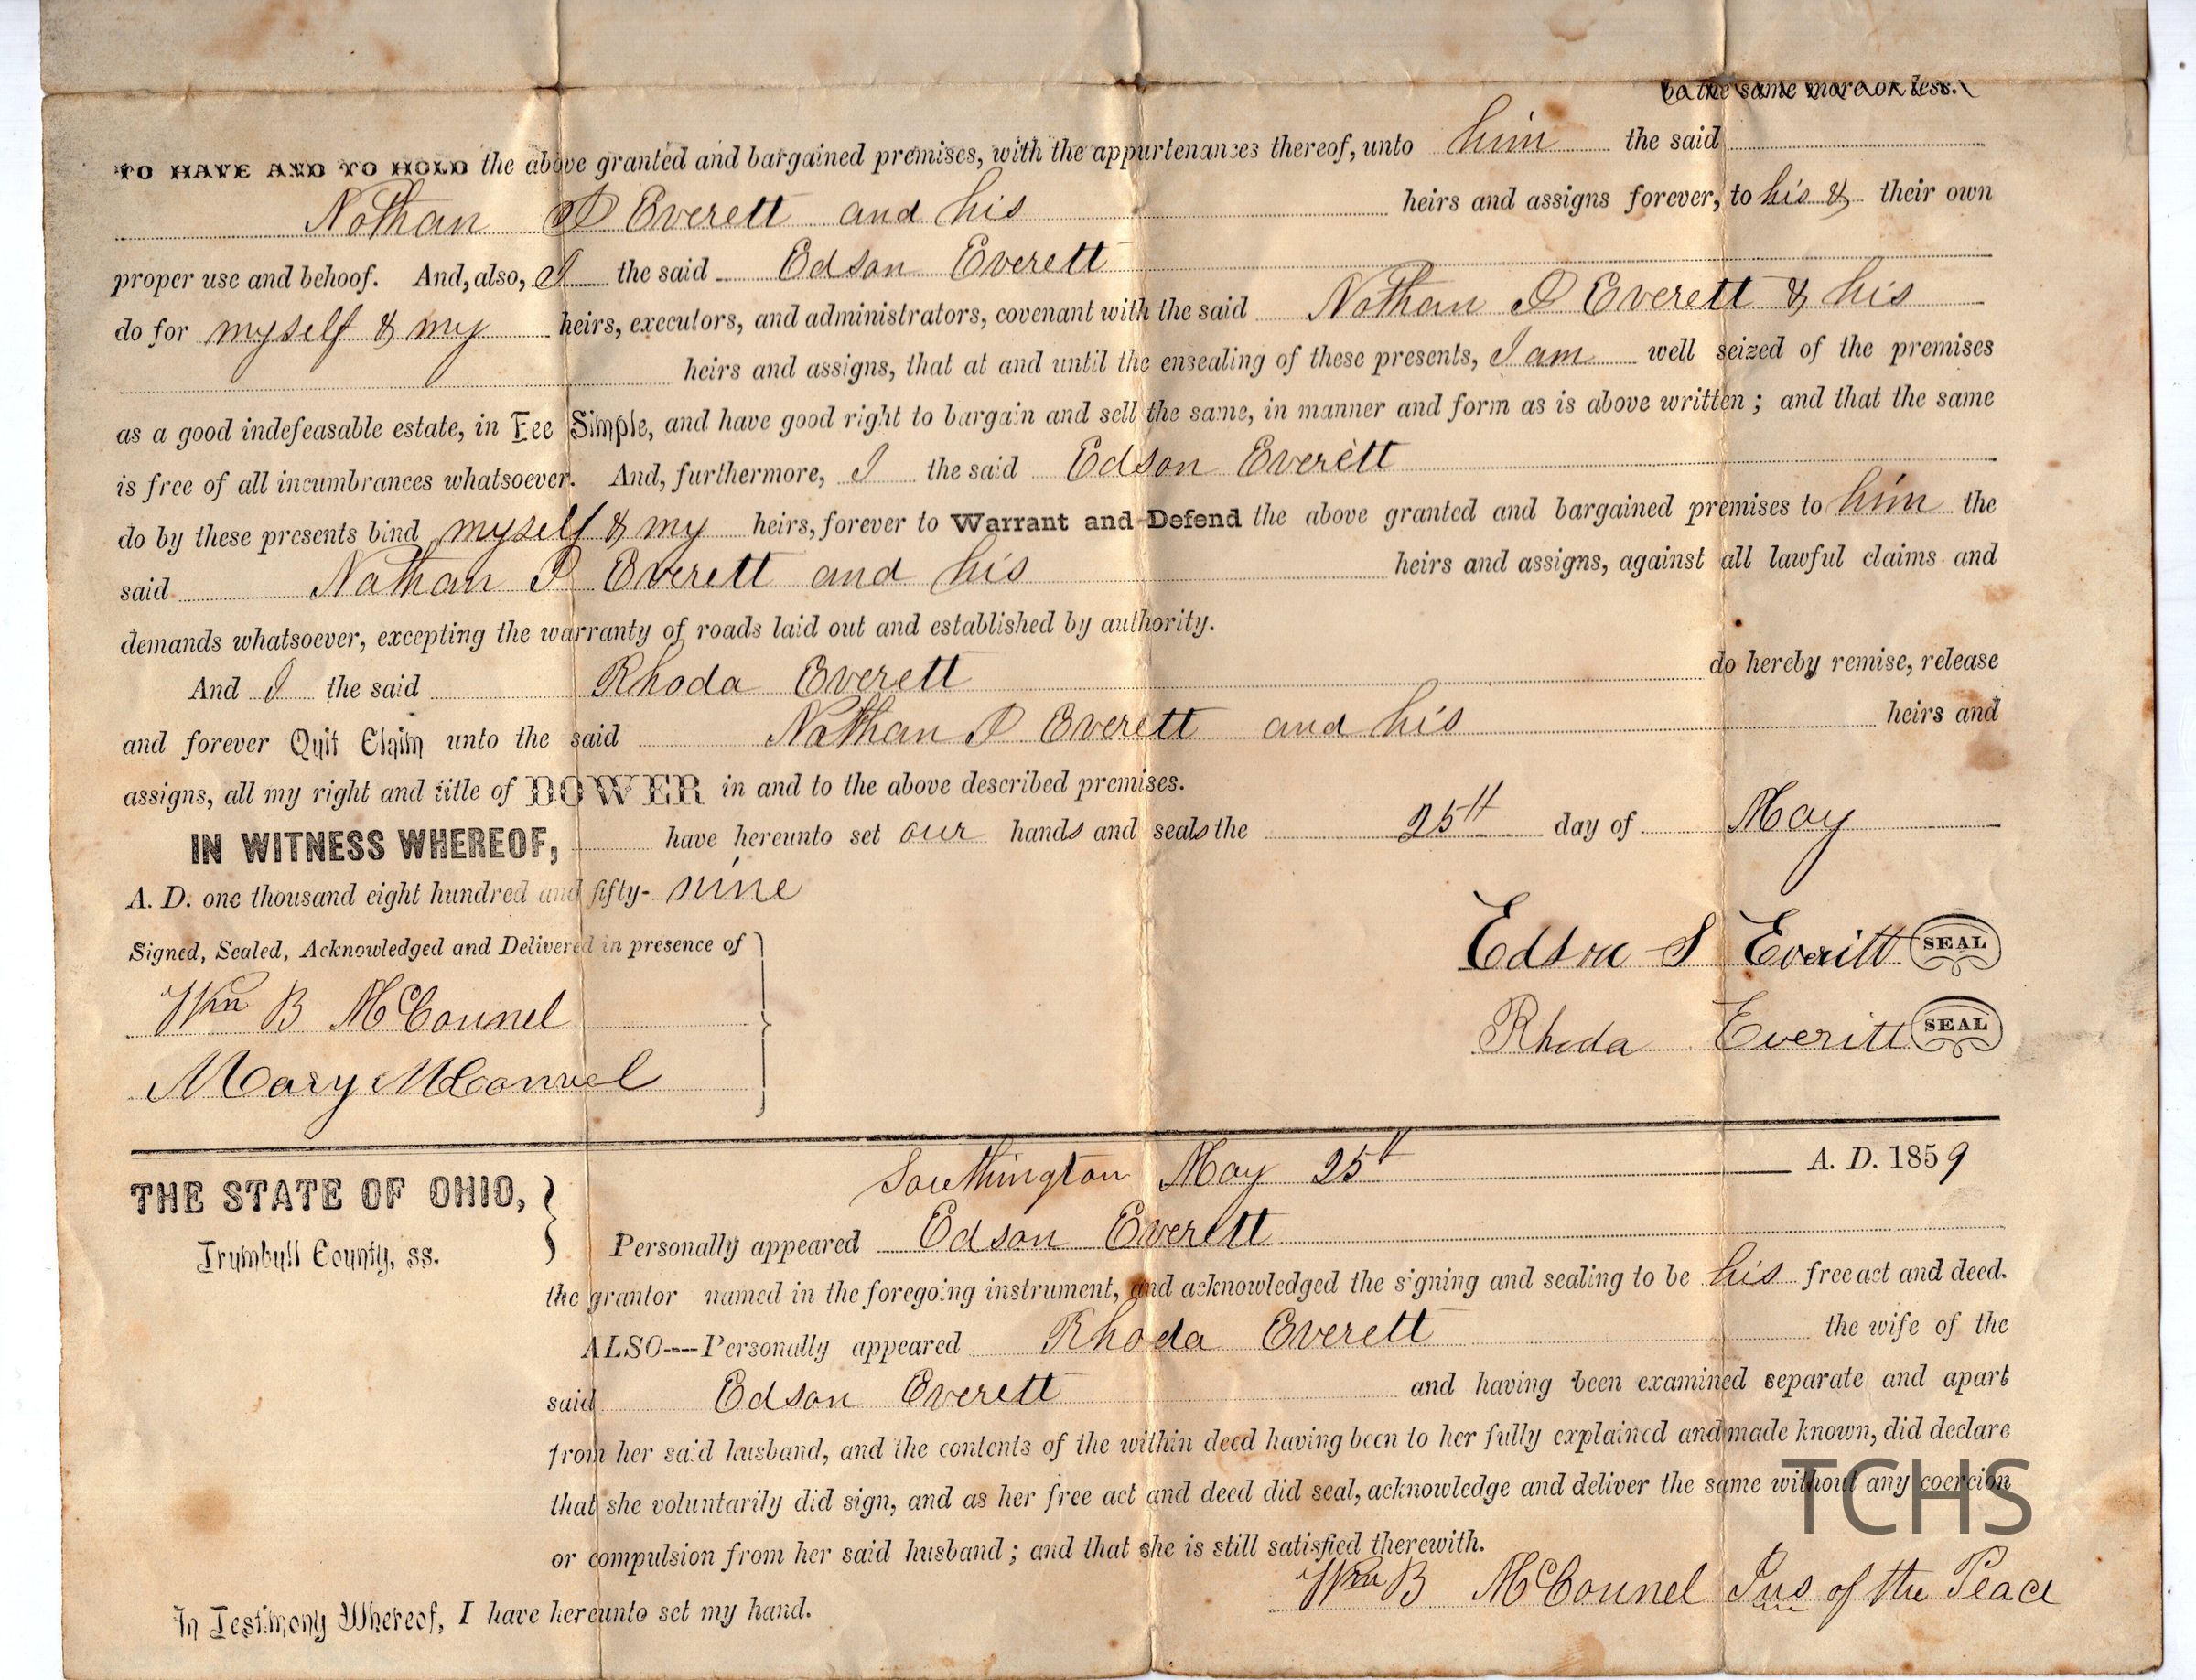 be the same more or less.
TO HAVE AND TO HOLD the above granted and bargained premises, with the appurtenances thereof, unto him the said
Nathan I Everett and his heirs and assigns forever, to his & their own
proper use and behoof. And, also, I the said Edson Everett
do for myself & my heirs, executors, and administrators, covenant with the said Nathan I Everett & his
heirs and assigns, that at and until the ensealing of these presents, I am well seized of the premises
as a good indefeasable estate, in Fee Simple, and have good right to bargain and sell the same, in manner and form as is above written; and that the same
is free of all incumbrances whatsoever. And, furthermore, I the said Edson Everett
do by these presents bind myself & my heirs, forever to Warrant and Defend the above granted and bargained premises to him the
said Nathan I Everett and his heirs and assigns, against all lawful claims and
demands whatsoever, excepting the warranty of roads laid out and established by authority.
And I the said Rhoda Everett do hereby remise, release
and forever Quit Claim unto the said Nathan I Everett and his heirs and
assigns, all my right and title of DOWER in and to the above described premises.
IN WITNESS WHEREOF, have hereunto set our hands and seals the 25th day of May
A. D. one thousand eight hundred and fifty- nine
Signed, Sealed, Acknowledged and Delivered in presence of
Edson S Everitt SEAL
Wm B McConnel
Rhoda Everitt SEAL
Mary McConnel
Southington May 25th A. D. 1859
THE STATE OF OHIO,
Trumbull County, ss.
Personally appeared Edson Everett
the grantor named in the foregoing instrument, and acknowledged the signing and sealing to be his free act and deed.
ALSO----Personally appeared Rhoda Everett the wife of the
said Edson Everett and having been examined separate and apart
from her said husband, and the contents of the within deed having been to her fully explained and made known, did declare
that she voluntarily did sign, and as her free act and deed did seal, acknowledge and deliver the same without any coercion
or compulsion from her said husband; and that she is still satisfied therewith.
TCHS
Wm B McConnel Jus of the Peace
In Testimony Whereof, I have hereunto set my hand.